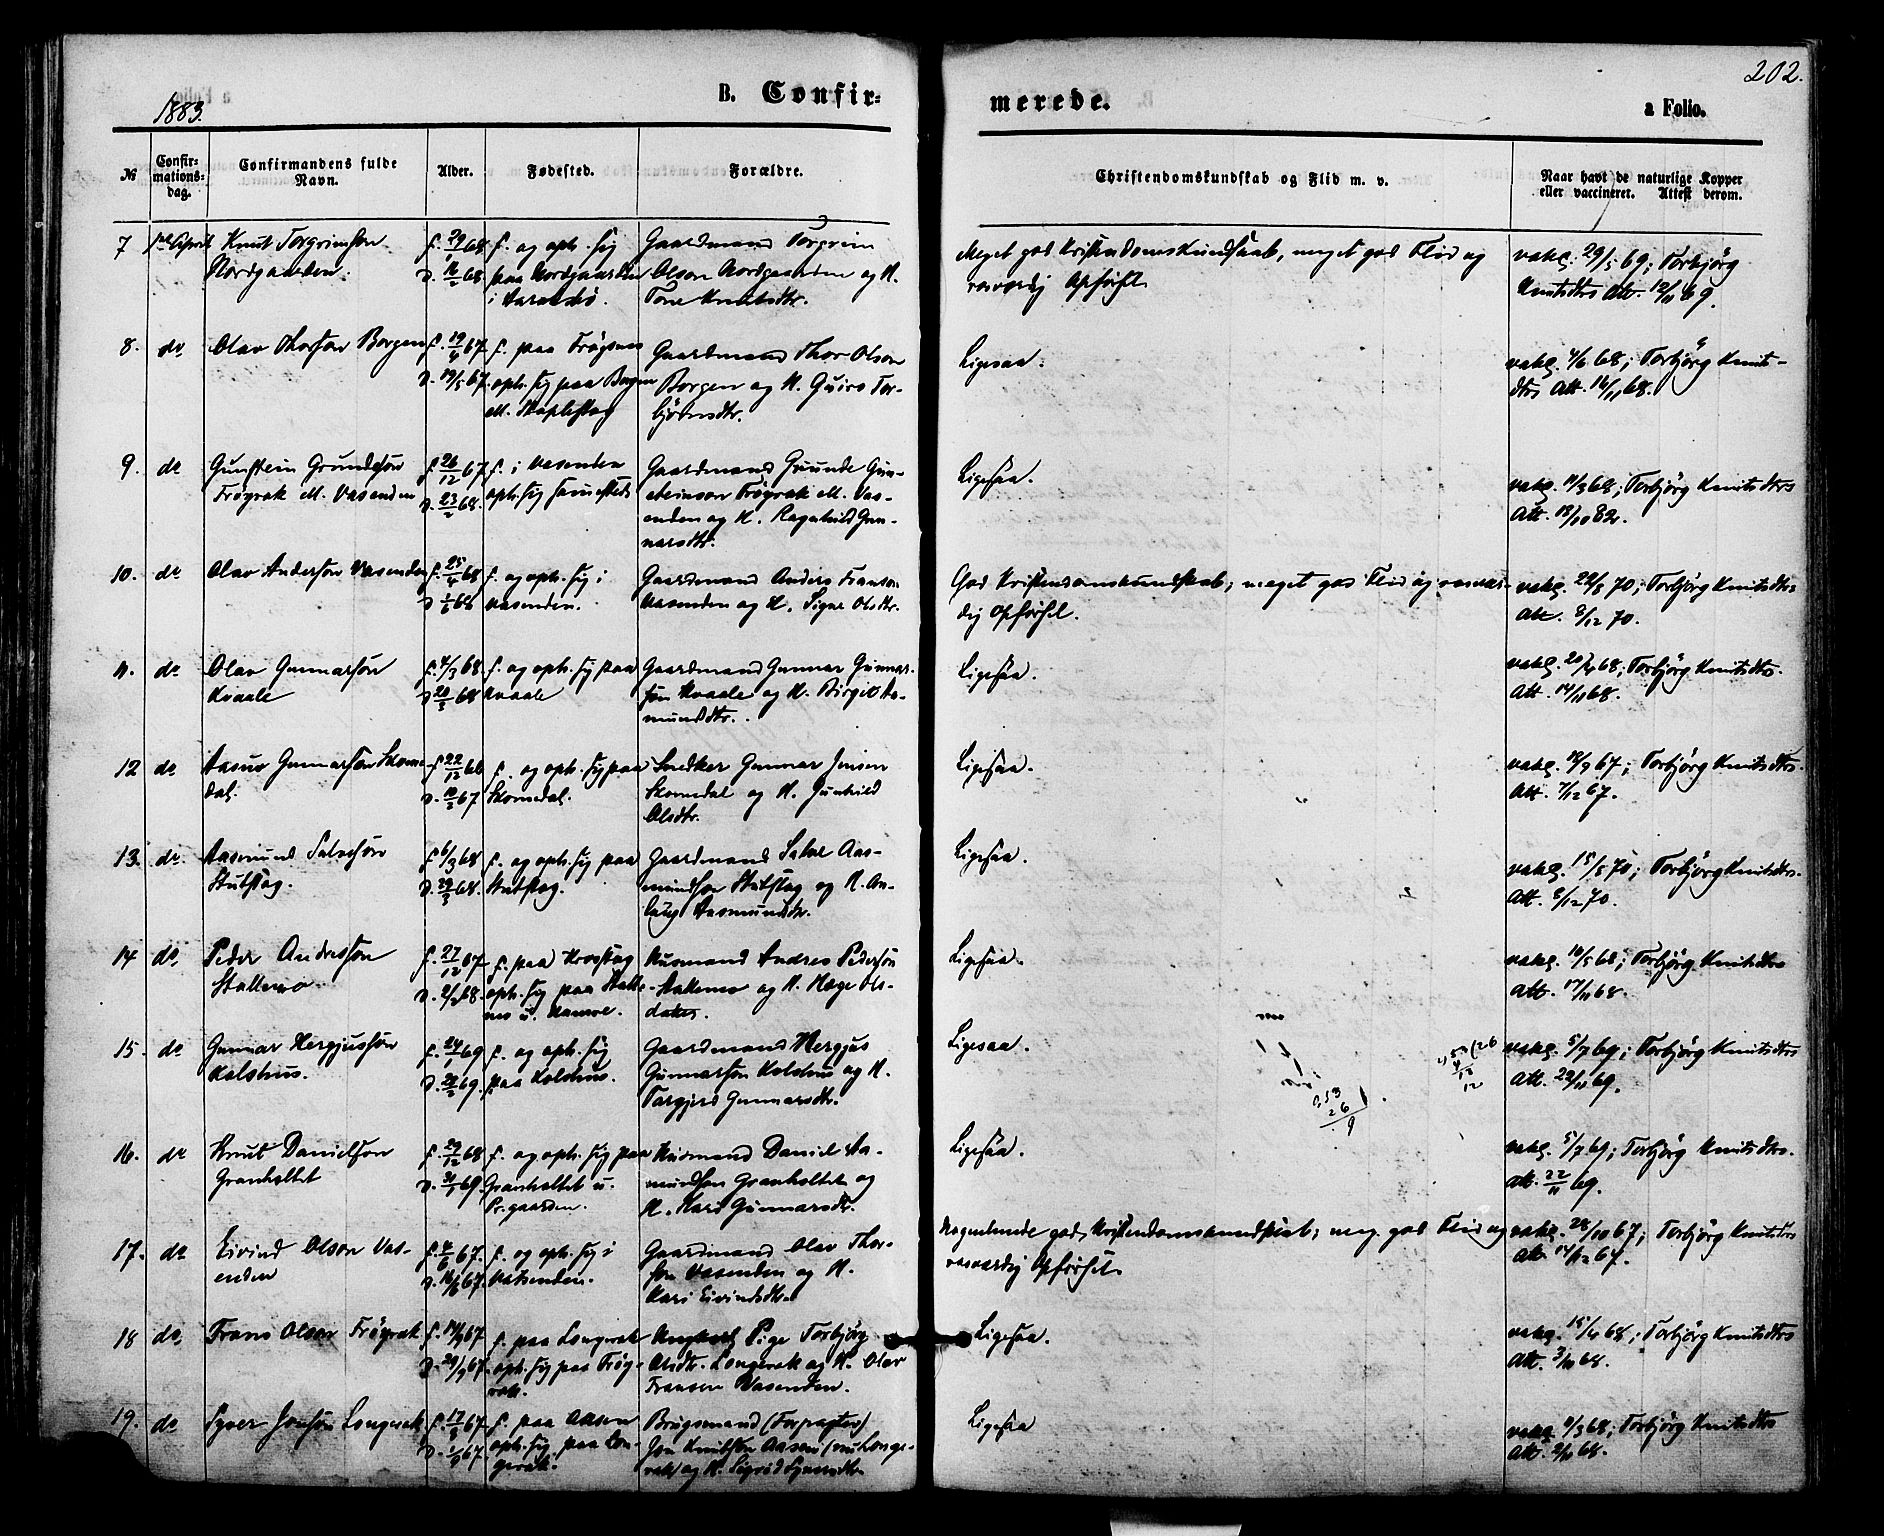 202.
1883.
B. Confir-
merede.
a Folio.
№
Confir-
mations-
dag.
Confirmandens fulde
Navn.
Alder.
Fødested.
Forældre.
Christendomskundskab og Flid m. v.
Naar havt de naturlige Kopper
eller vaccineret. Attest derom.
7 1ste April Knut Torgrimson
Nordgaarden.
f. og oph. sig
paa Nordgaarden
Gaardmand Torgrim
Olson Nordgaarden og K.
Tone Knutsdtr.
Meget god Kristendomskundskab, meget god Flid og
rosværdig Opførsel.
vakc. 29/5 69; Torbjørg
Knutsdtrs Att. 12/11 69.
8. do Olav Thorson Borgen
f. 19/4 67
D. 19/5 67.
f. paa Frøysnes
oph. sig paa Borgen
Gaardmand Thor Olson
Borgen og K. Guro Tor-
bjørnsdtr.
Ligesaa.
vakc. 4/6 68; Torbjørg Knuts-
dtrs Att. 16/11 68.
9. do Gunstein Grundeson
Frøyrak M. Vasenden
f. 26/12 67
D. 23/2 68.
f. i Vasenden
oph. sig samesteds
Gaardmand Grunde Gun-
steinson Frøyrak M. Vas-
enden og K. Ragnhild Gun-
narsdtr.
Ligesaa.
vakc. 11/3 68; Torbjørg Knutsdtrs
Att. 18/10 82.
10. do Olav Anderson Vasenden
f. 25/4 68
f. og oph. sig i
Vasenden.
Gaardmand Anders Franson
Vasenden og K. Signe Olsdtr.
God Kristendomskundskab, meget god Flid og rosvær-
dig Opførsel.
vakc. 22/5 70; Torbjørg Knutsdtrs
Att. 8/12 70.
11. do Olav Gunnarson
Kvaale
f. 4/3 68
D. 20/3 68
f. og oph. sig paa
Kvaale
Gaardmand Gunnar Gunnar-
son Kvaale og K. Birgit Aa-
mundsdtr.
Ligesaa.
vakc. 20/4 68; Torbjørg Knutsdtrs
Att. 14/11 68.
12 do Aasuv Gunnarson Skome-
dal.
f. 22/12 66
D. 10/2 67
f. og oph. sig paa
Skomedal.
Snedker Gunnar Jensen
Skomedal og K. Gunhild
Olsdtr.
Ligesaa.
vakc. 19/9 67; Torbjørg Knutsdtrs.
Att. 7/12 67.
13. do. Aasmund Salveson
Stutstag.
f. 6/3 68
D. 29/3 68.
f. og oph. sig paa
Stutstag.
Gaardmand Salve Aas-
mundson Stutstag og K. An-
laug Aasmundsdtr.
Ligesaa.
vakc. 15/5 70; Torbjørg Knutsdtrs.
Att. 8/12 70.
14 do. Peder Andresson
Stallemo
f. 27/12 67
D. 2/2 68.
f. paa Krosstag
oph. sig paa Stalle-
Husmand Andres Pederson
Stallemo og K. Hæge Ols-
datter.
Ligesaa.
vakc. 10/5 68; Torbjørg Knutsdtrs
Att. 17/11 68.
15. do Gunnar Hergjusson
Kolshus.
f. 24/1 69
f. og oph. sig
paa Kolshus.
Gaardmand Hergjus
Gunnarson Kolshus og K.
Targjerd Gunnarsdtr.
Ligesaa.
vakc. 5/7 69; Torbjørg Knutsdtrs
Att. 22/11 69.
16. do Knut Danielson
Granheltet
f. 29/12 68
D. 31/1 69.
f. og oph. sig paa
Granheltet u.
Pr.gaarden.
Husmand Daniel Aa-
mundson Granheltet og
K. Kari Gunnarsdtr.
Ligesaa.
vakc. 5/7 69; Torbjørg Knutsdtrs.
Att. 22/11 69.
17. do Eivind Olson Vas-
enden
f. 4/6 67.
D. 16/6 67.
f. og oph. sig i
Vatsenden.
Gaardmand Olav Thor-
son Vasenden og K.
Kari Eivindsdtr.
Nogenlunde god Kristendomskundskab; meg. god Flid og
rosværdig Opførsel.
vakc. 28/10 67; Torbjørg Knutsdtrs
Att. 14/12 67.
18 do. Frans Olson Frøyrak
f. 14/9 67
D. 29/9 67.
f. paa Longerak
oph. sig paa Frøy-
rak.
Pige Torbjørg
Olsdtr. Longerak og K. Olav
Fransen Vasenden.
Ligesaa.
vakc. 15/4 68; Torbjørg Knutsdtrs
Att. 3/11 68.
19. do Syver Jonson Longerak
D. 1/9 67.
f. paa Aasen
oph. sig paa Lon-
gerak.
Brugsmand (Forpagter)
Jon Knutson Aasen (nu Longe-
rak og K. Sigrid Syversdtr.
Ligesaa
vakc. 9/3 68; Torbjørg Knutsdtrs
Att. 2/11 68.